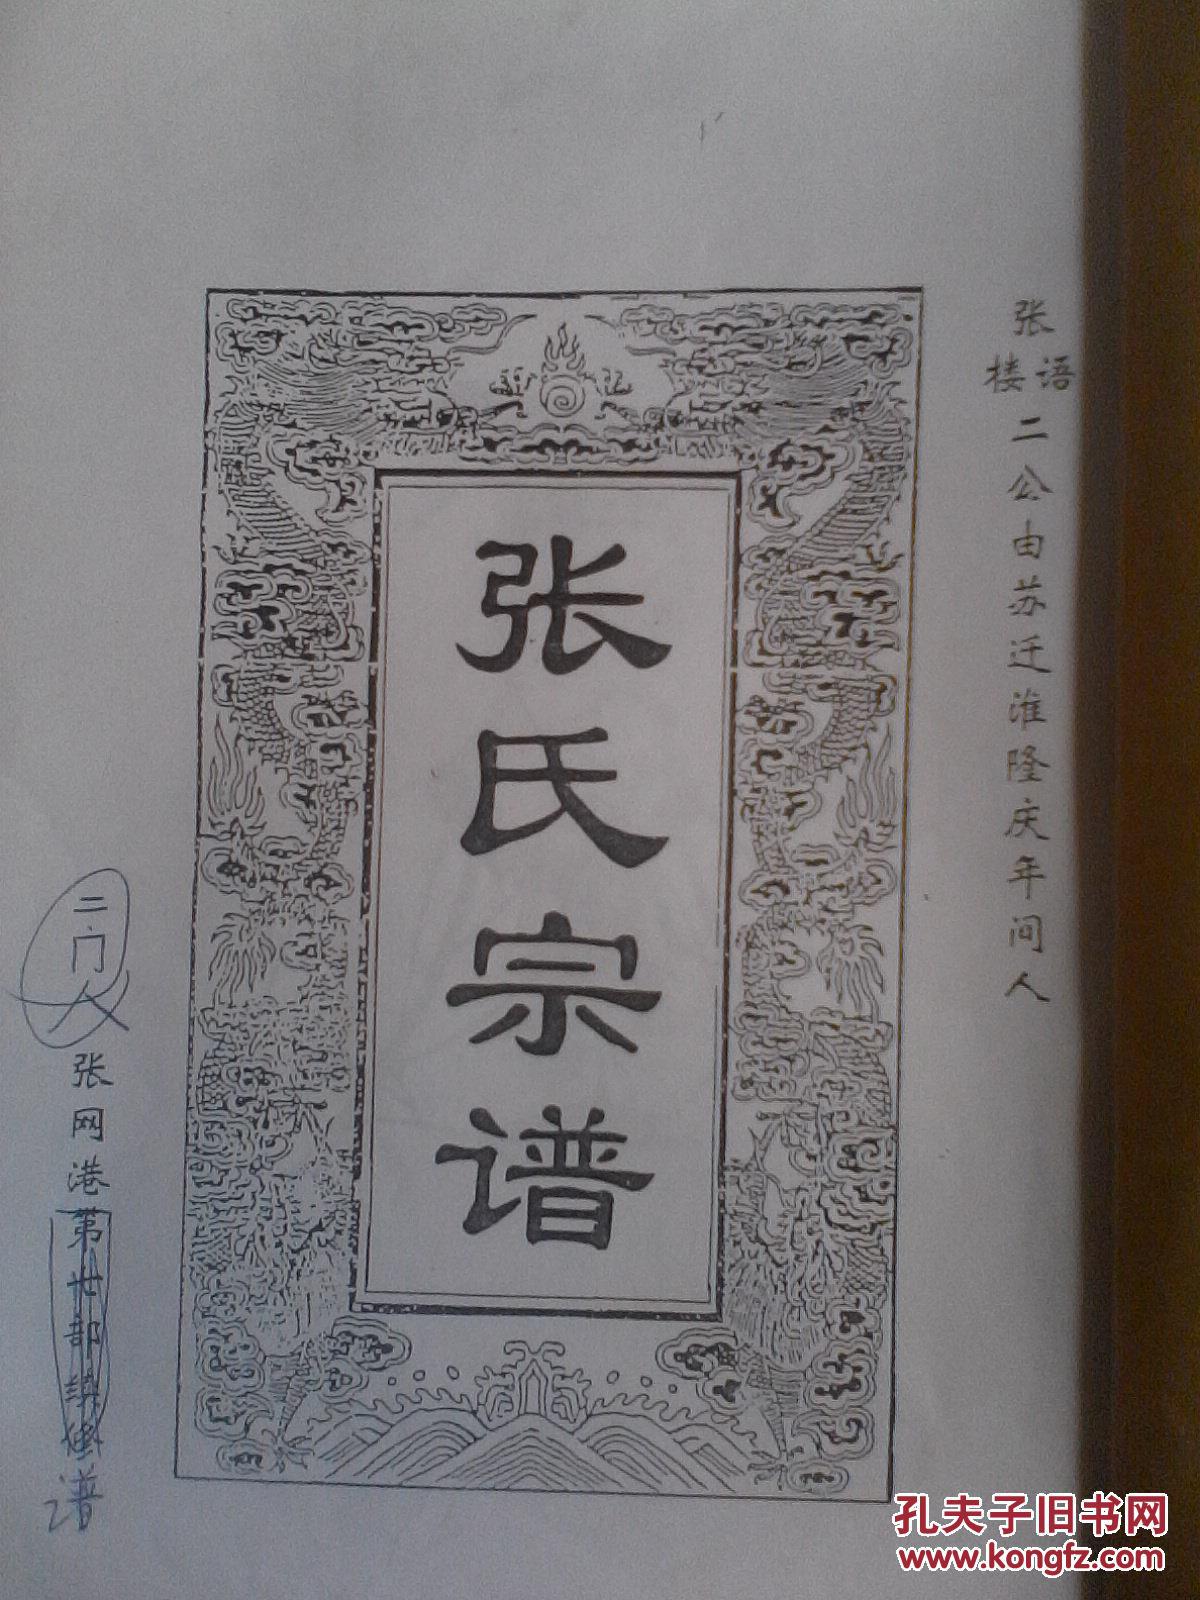 张语楼二公由苏迁淮隆庆年间人
张氏宗谱
二门人张网港第廿部谱
孔夫子旧书网
www.kongfz.com